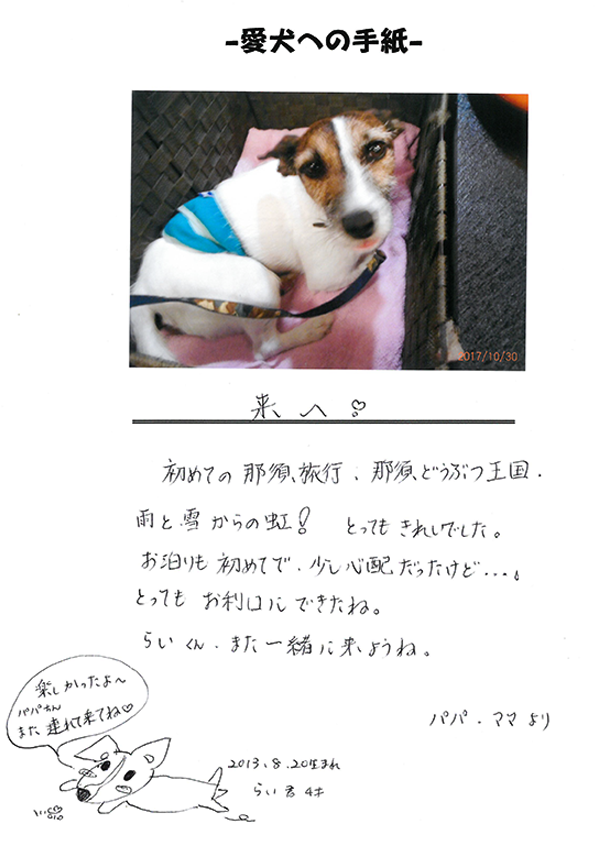 -愛犬への手紙-
2017/10/30
来へ♡
初めての那須旅行、那須どうぶつ王国.
雨と雪からの虹! とってもきれいでした。
お泊りも初めてで、少し心配だったけど...。
とってもお利口にできたね。
らいくん、また一緒に来ようね。
パパ・ママより
楽しかったよ〜
パパさん
また連れて来てね♡
2013.8.20生まれ
らい君 4才